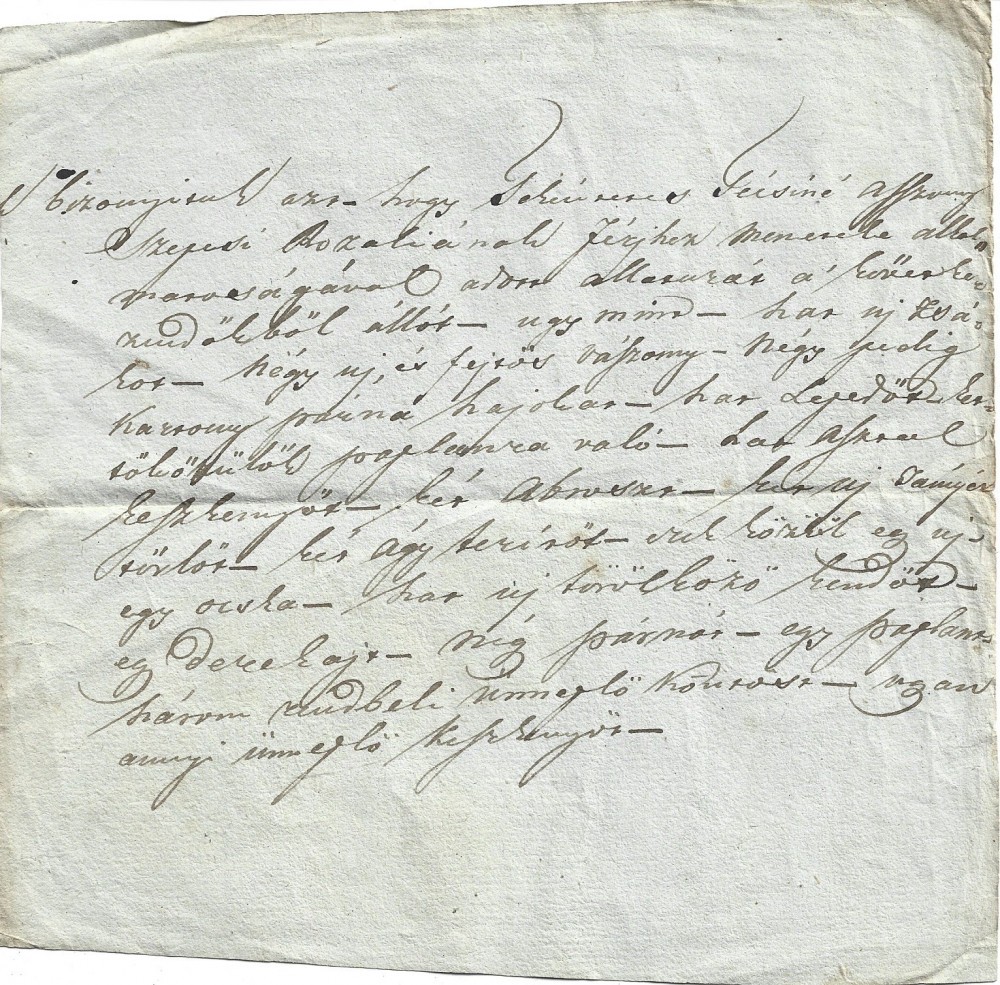 bizonyituk azt – hogy Tekéntetes Técsiné Asszony
Szepesi Roxaliának Férjhez menetele allal
marosságával adott allaturát a' következen
rudőkből állót – ugy mint – hat uj Zsá-
kot – Négy uj, és fejtős vászony – Négy pedig
Kattony párna hajokat – hat Lepedőt ket-
tőt paplanra való – hat Asztal
keszkenyőt – két Abroszt – hat uj Tányér
törlőt – két ágy terítőt – ezek közzűl eg uj –
egy ocska – hat uj törölköző kendőt –
eg derekajt – nég párnát – egy paplant
három rudbeli ünneplő Köntöst – ugyan
annyi ünneplő Keszkenyőt –